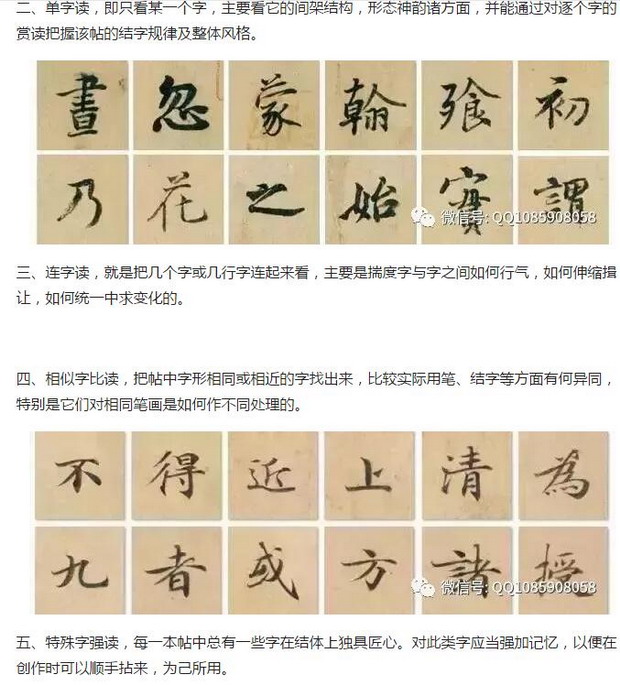 二、单字读，即只看某一个字，主要看它的间架结构，形态神韵诸方面，并能通过对逐个字的
赏读把握该帖的结字规律及整体风格。
晝 忽 蒙 翰 飱 初
乃 花 之 始 實 謂
微信号: QQ1085908058
三、连字读，就是把几个字或几行字连起来看，主要是揣度字与字之间如何行气，如何伸缩揖
让，如何统一中求变化的。
四、相似字比读，把帖中字形相同或相近的字找出来，比较实际用笔、结字等方面有何异同，
特别是它们对相同笔画是如何作不同处理的。
不 得 近 上 清 為
九 者 或 方 諸 授
微信号: QQ1085908058
五、特殊字强读，每一本帖中总有一些字在结体上独具匠心。对此类字应当强加记忆，以便在
创作时可以顺手拈来，为己所用。